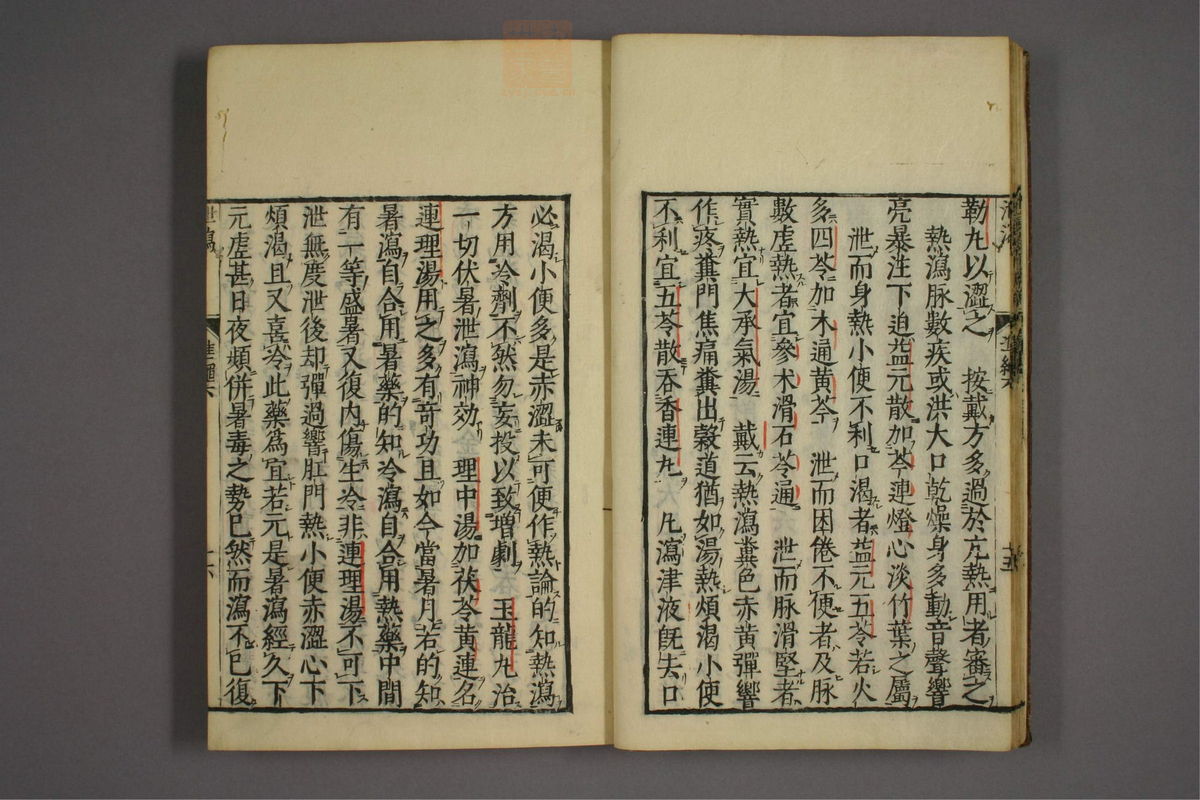 勒九以澀之　按戴方多過於亢熱用者審之
熱瀉脉數疾或洪大口乾燥身多動音聲響
亮暴注下迫益元散加芩連燈心淡竹葉之屬
泄而身熱小便不利口渴者益元五苓若火
多四苓加木通黄芩　泄而困倦不便者及脉
數虚熱者宜參术滑石苓通　泄而脉滑堅者
實熱宜大承氣湯　戴云熱瀉糞色赤黄彈響
作疼糞門焦痛糞出穀道猶如湯熱煩渴小便
不利宜五苓散吞香連九　凡瀉津液既去口
必渴小便多是赤澀未可便作熱論的知熱瀉
方用冷劑不然勿妄投以致增劇　玉龍九治
一切伏暑泄瀉神効　理中湯加茯苓黄連名
連理湯用之多有奇功且如今當暑月若的知
暑瀉自合用暑藥的知冷瀉自合用熱藥中間
有一等盛暑又復内傷生冷非連理湯不可下
泄無度泄後却彈過響肛門熱小便赤澀心下
煩渴且又喜冷此藥爲宜若元是暑瀉經久下
元虚甚日夜頻併暑毒之勢已然而瀉不已復
泄瀉
十六